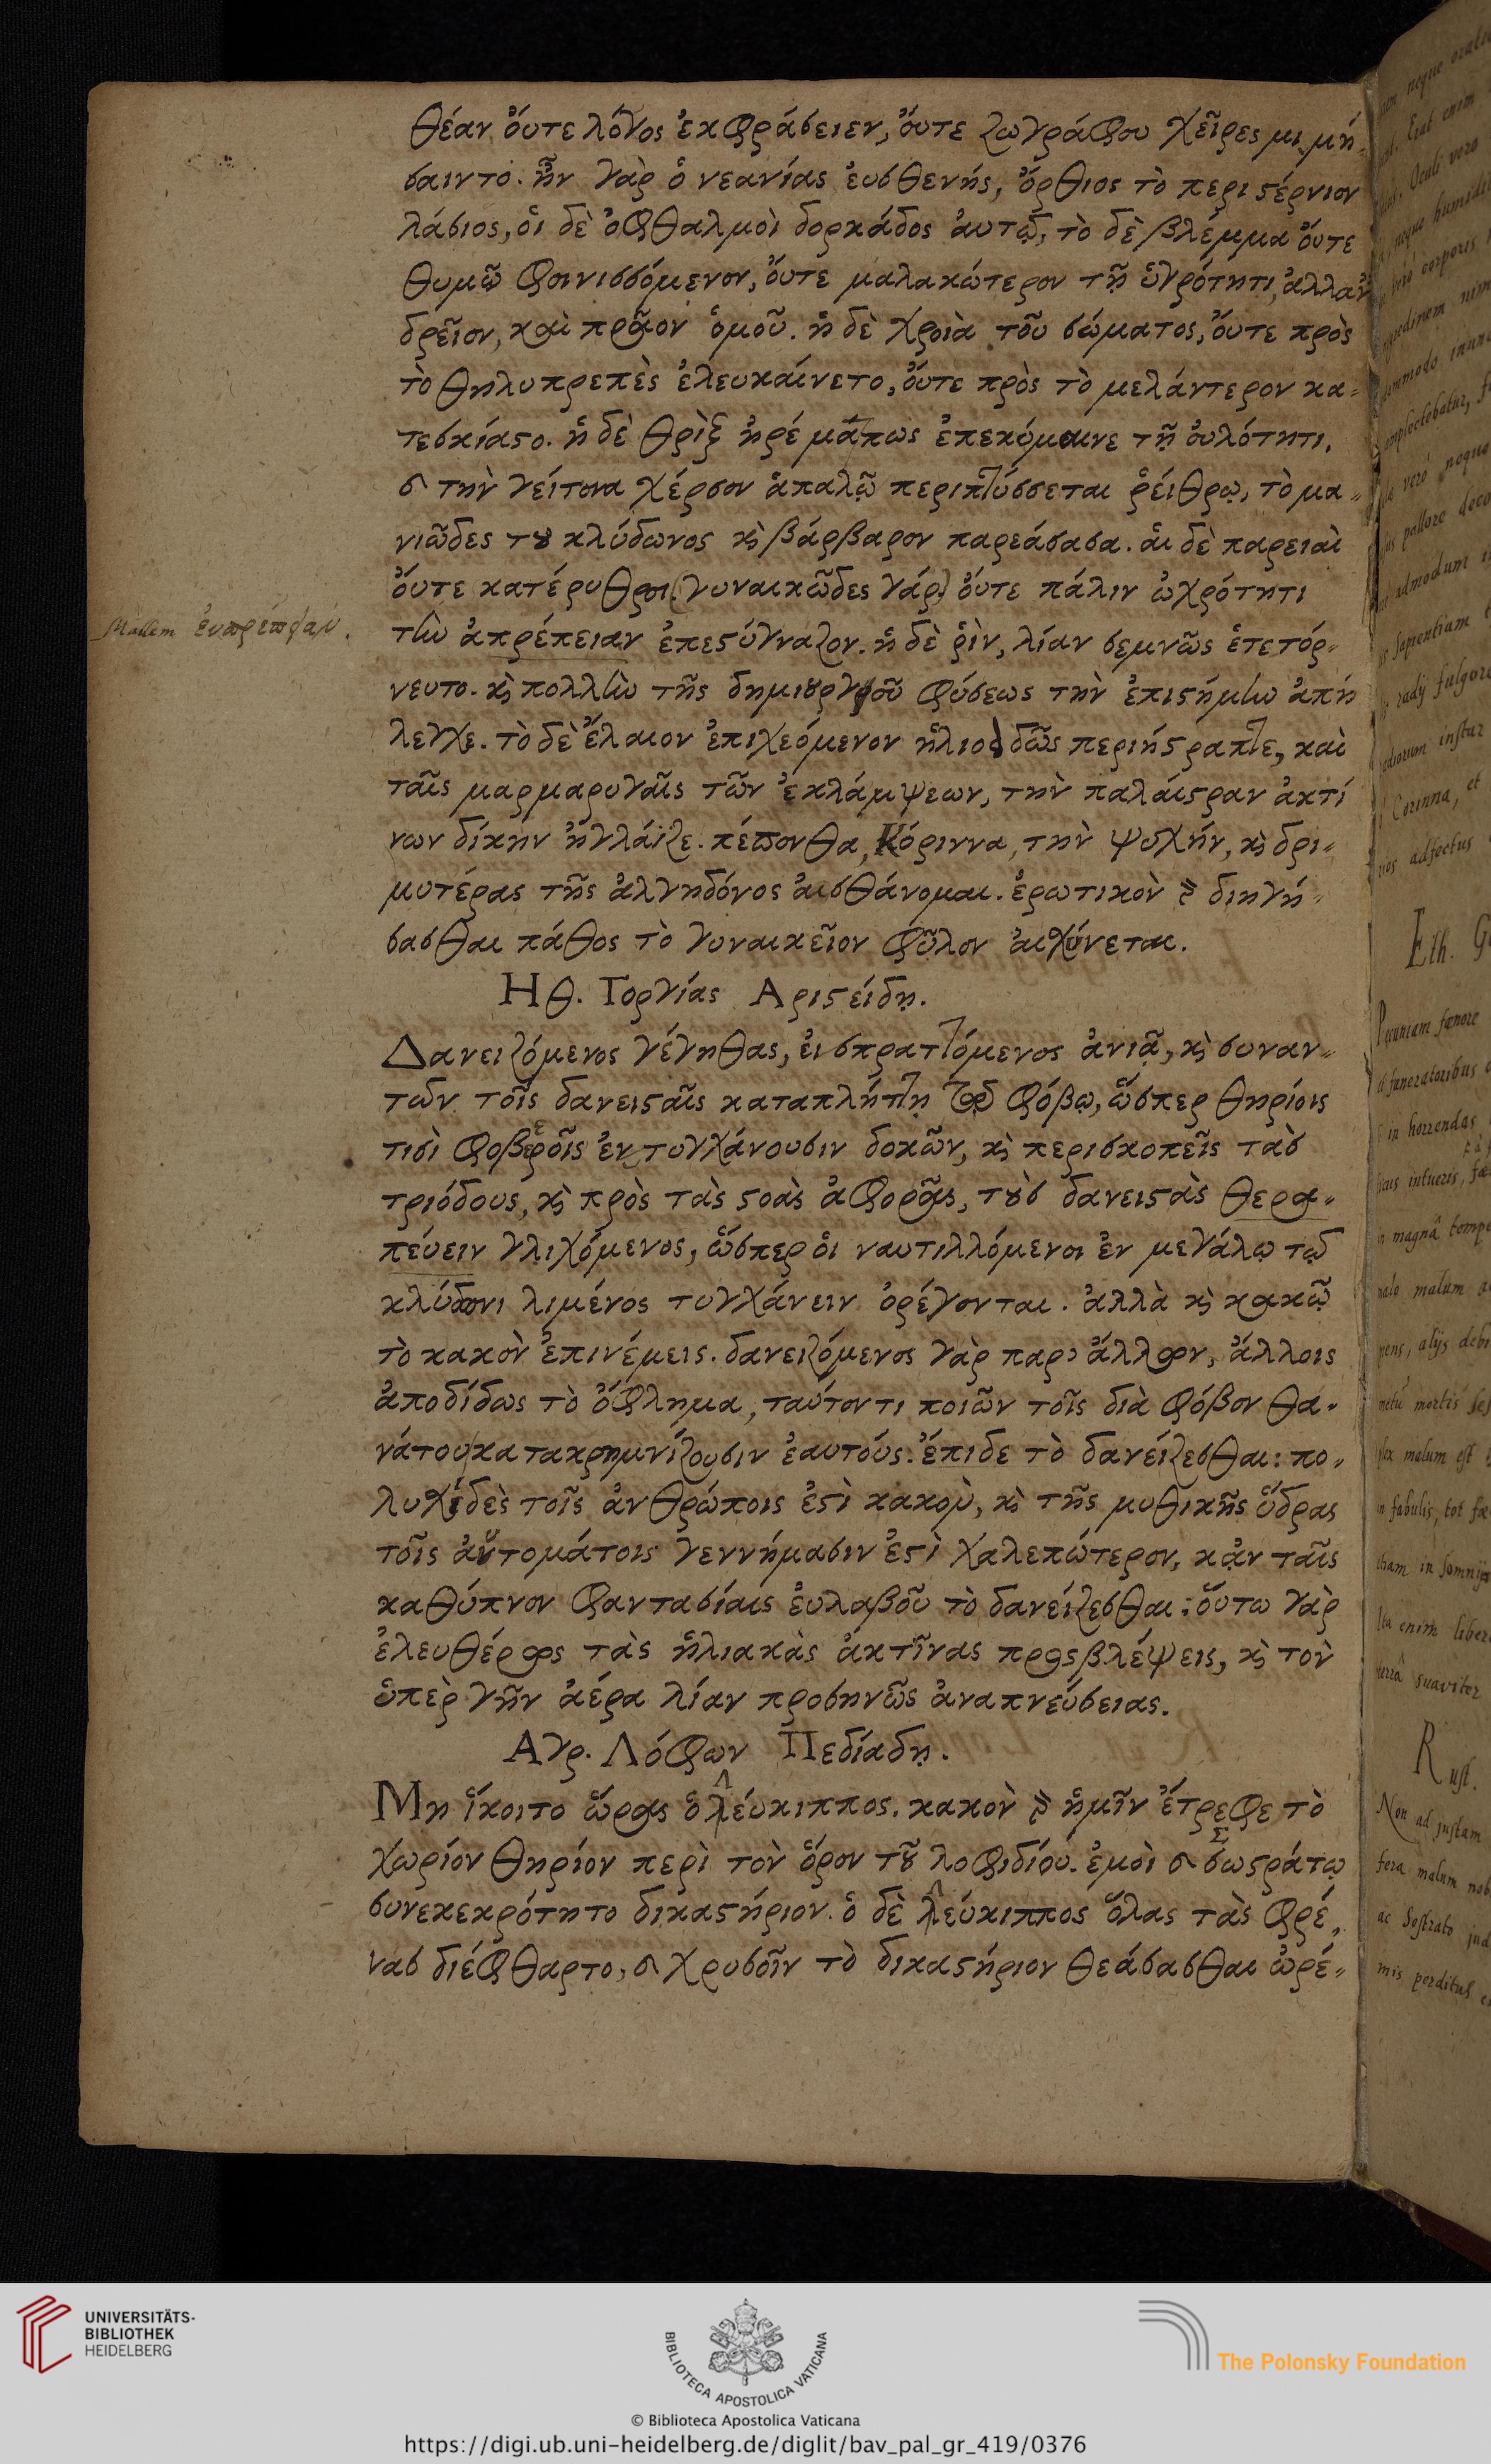 θέαν ὄυτε λόγος ἐκφράσειεν, ὄυτε ζωγράφου χεῖρες μιμή-
σαιντο. ἦν γὰρ ὁ νεανίας ἐυσθενής, ὄρθιος τὸ περιστέρνιον
λάσιος, ὁι δὲ ὀφθαλμοὶ δορκάδος ἀυτῷ, τὸ δὲ βλέμμα ὄυτε
θυμῷ φοινισσόμενον, ὄυτε μαλακώτερον τῇ ὑγρότητι, ἀλλ' ἀν
δρεῖον, καὶ πρᾶον ὁμοῦ. ἡ δὲ χροιὰ τοῦ σώματος, ὄυτε πρὸς
τὸ θηλυπρεπὲς ἐλευκαίνετο, ὄυτε πρὸς τὸ μελάντερον κα-
τεσκίαστο. ἡ δὲ θρὶξ ἠρέμα πως ἐπεκύμαινε τῇ ὀυλότητι.
τὴν γείτονα χέρσον ἁπαλῷ περιπτύσσεται ῥείθρῳ, τὸ μα-
νιῶδες τοῦ κλύδωνος καὶ βάρβαρον παρεάσασα. ἁι δὲ παρειαὶ
ὄυτε κατέρυθροι (γυναικῶδες γάρ) ὄυτε πάλιν ὠχρότητι
τὴν ἀπρέπειαν ἐπεστύγναζον. ἡ δὲ ῥὶν, λίαν σεμνῶς ἐτετόρ-
νευτο. καὶ πολλὴν τῆς δημιουργοῦ φύσεως τὴν ἐπιστήμην ἀπή
λεγχε. τὸ δὲ ἔλαιον ἐπιχεόμενον περιήστραπτε, καὶ
ταῖς μαρμαρυγαῖς τῶν ἐκλάμψεων, τὴν παλαίστραν ἀκτί
νων δίκην ἠγλάιζε. πέπονθα, Κόριννα, τὴν ψυχήν, καὶ δρι-
μυτέρας τῆς ἀλγηδόνος ἀισθάνομαι. ἐρωτικὸν γὰρ διηγή-
σασθαι πάθος τὸ γυναικεῖον φῦλον ἀισχύνεται.
Ηθ. Γοργίας Αριστείδῃ.
Δανειζόμενος γέγηθας, ἐισπραττόμενος ἀνιᾷ, καὶ συναν-
τῶν τοῖς δανεισταῖς καταπλήττῃ τῷ φόβῳ, ὥσπερ θηρίοις
τισὶ φοβεροῖς ἐντυγχάνουσιν δοκῶν, καὶ περισκοπεῖς τὰς
τριόδους, καὶ πρὸς τὰς στοὰς ἀφορᾷς, τοὺς δανειστὰς θερα-
πέυειν γλιχόμενος, ὥσπερ ὁι ναυτιλλόμενοι ἐν μεγάλῳ τῷ
κλύδωνι λιμένος τυγχάνειν ὀρέγονται. ἀλλὰ καὶ κακῷ
τὸ κακὸν ἐπινέμεις. δανειζόμενος γὰρ παρ' ἄλλων, ἄλλοις
ἀποδίδως τὸ ὄφλημα, ταύτον τι ποιῶν τοῖς διὰ φόβον θα-
νάτου κατακρημνίζουσιν ἑαυτούς. ἔπιδε τὸ δανείζεσθαι: πο-
λυχιδὲς τοῖς ἀνθρώποις ἐστὶ κακὸν, καὶ τῆς μυθικῆς ὕδρας
τοῖς ἀυτομάτοις γεννήμασιν ἐστὶ χαλεπώτερον, κᾂν ταῖς
καθύπνον φαντασίαις ἐυλαβοῦ τὸ δανείζεσθαι: ὄυτω γὰρ
ἐλευθέρως τὰς ἡλιακὰς ἀκτῖνας προςβλέψεις, καὶ τὸν
ὑπὲρ γῆν ἀέρα λίαν προσηνῶς ἀναπνεύσειας.
Αγρ. Λόφων Πεδιάδῃ.
Μη ἵκοιτο ὥρας ὁ Λέυκιππος. κακὸν γὰρ ἡμῖν ἔτρεφε τὸ
χωρίον θηρίον περὶ τὸν ὅρον τοῦ λοφιδίου. ἐμοὶ καὶ Σωστράτῳ
συνεκεκρότητο δικαστήριον. ὁ δὲ Λεύκιππος ὅλας τὰς φρέ-
νας διέφθαρτο, καὶ χρυσοῖν τὸ δικαστήριον θεάσασθαι ὠρέ-
Mallem ἐυπρέπειαν.
Eth.
Pecuniam fœnore
in horrendas
Corinna, et
Rust.
Non ad justam
fera malum nob
ac Sostrato jud
mis perditus
UNIVERSITÄTS-
BIBLIOTHEK
HEIDELBERG
BIBLIOTECA APOSTOLICA VATICANA
The Polonsky Foundation
© Biblioteca Apostolica Vaticana
https://digi.ub.uni-heidelberg.de/diglit/bav_pal_gr_419/0376